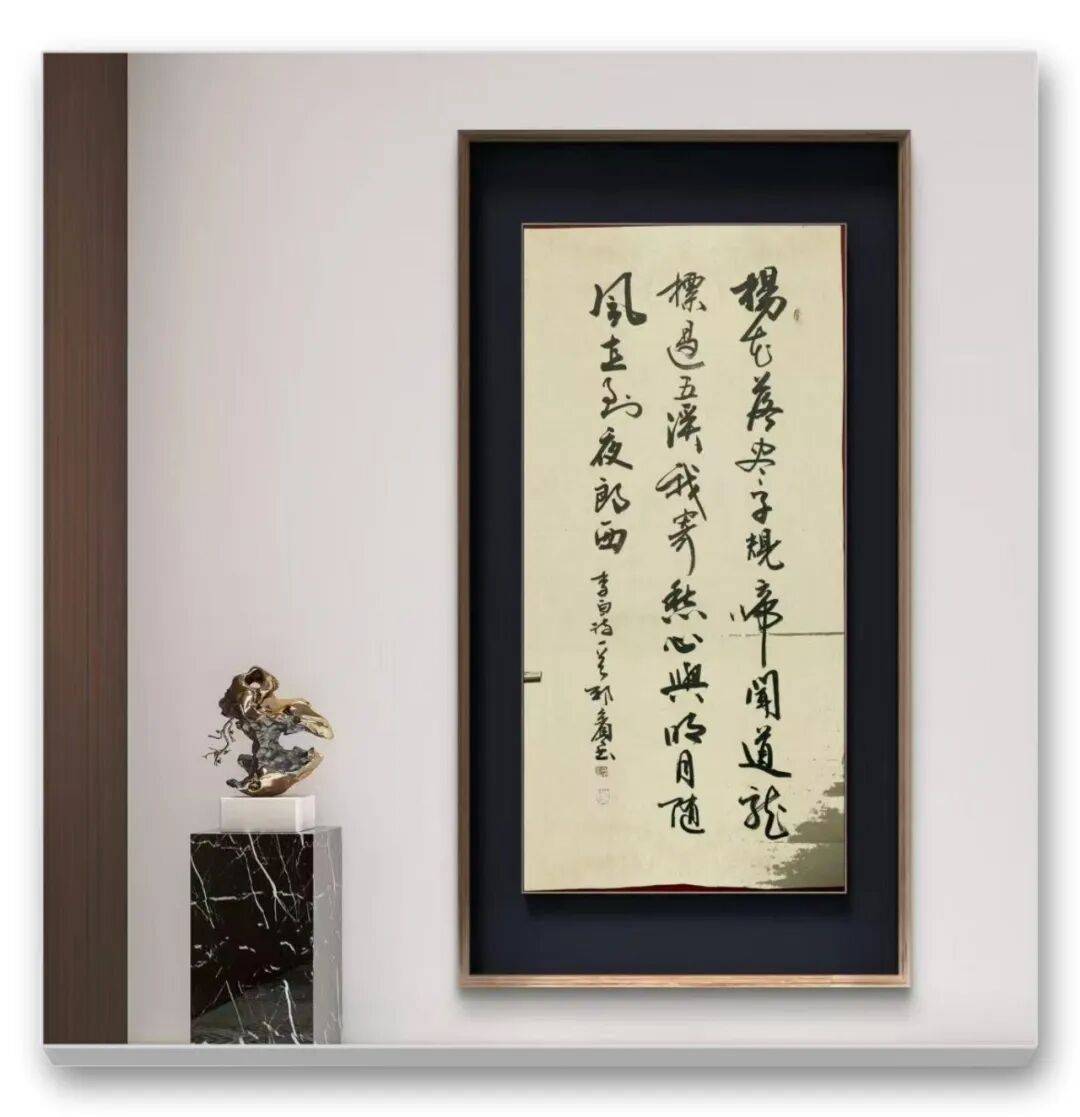 楊花落尽子規啼聞道龍
標過五溪我寄愁心與明月随
風直到夜郎西
李白诗一首